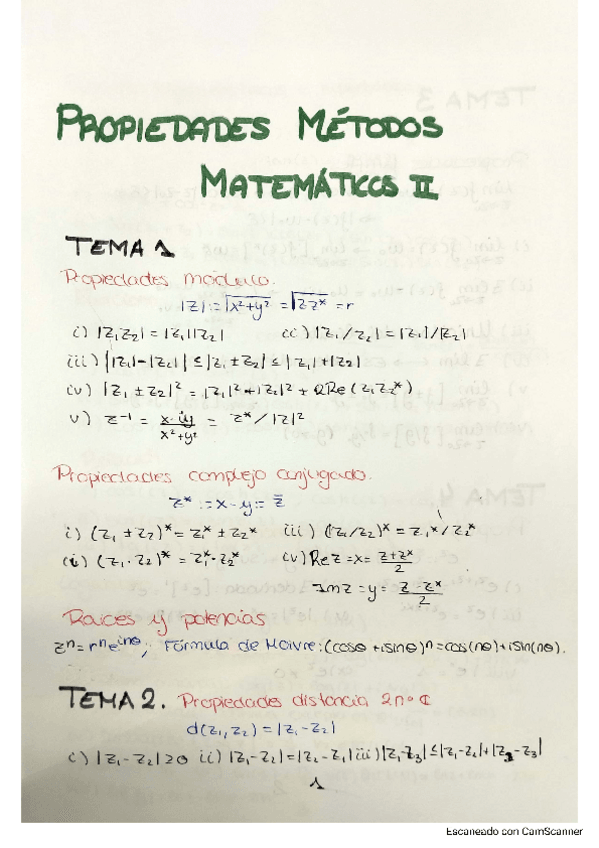 PROPIEDADES MÉTODOS
MATEMÁTICOS II
TEMA 1
Propiedades módulo.
|z| := √x²+y² = √zz* = r
i) |z₁z₂| = |z₁||z₂| ii) |z₁/z₂| = |z₁|/|z₂|
iii) ||z₁|-|z₂|| ≤ |z₁ ± z₂| ≤ |z₁|+|z₂|
iv) |z₁ ± z₂|² = |z₁|² + |z₂|² ± 2Re(z₁z₂*)
v) z⁻¹ = x-iy/x²+y² = z*/|z|²
Propiedades complejo conjugado.
z* := x-y = z̄
i) (z₁ ± z₂)* = z₁* ± z₂* iii) (z₁/z₂)* = z₁*/z₂*
ii) (z₁·z₂)* = z₁*·z₂* iv) Re z = x = z+z*/2
Im z = y = z-z*/2
Raíces y potencias
zⁿ = rⁿeⁱⁿᶿ; Fórmula de Moivre: (cosθ + isinθ)ⁿ = cos(nθ) + isin(nθ).
TEMA 2. Propiedades distancia 2 nº ℂ
d(z₁,z₂) = |z₁-z₂|
i) |z₁-z₂| ≥ 0 ii) |z₁-z₂| = |z₂-z₁| iii) |z₁-z₃| ≤ |z₁-z₂|+|z₂-z₃|
1
Escaneado con CamScanner